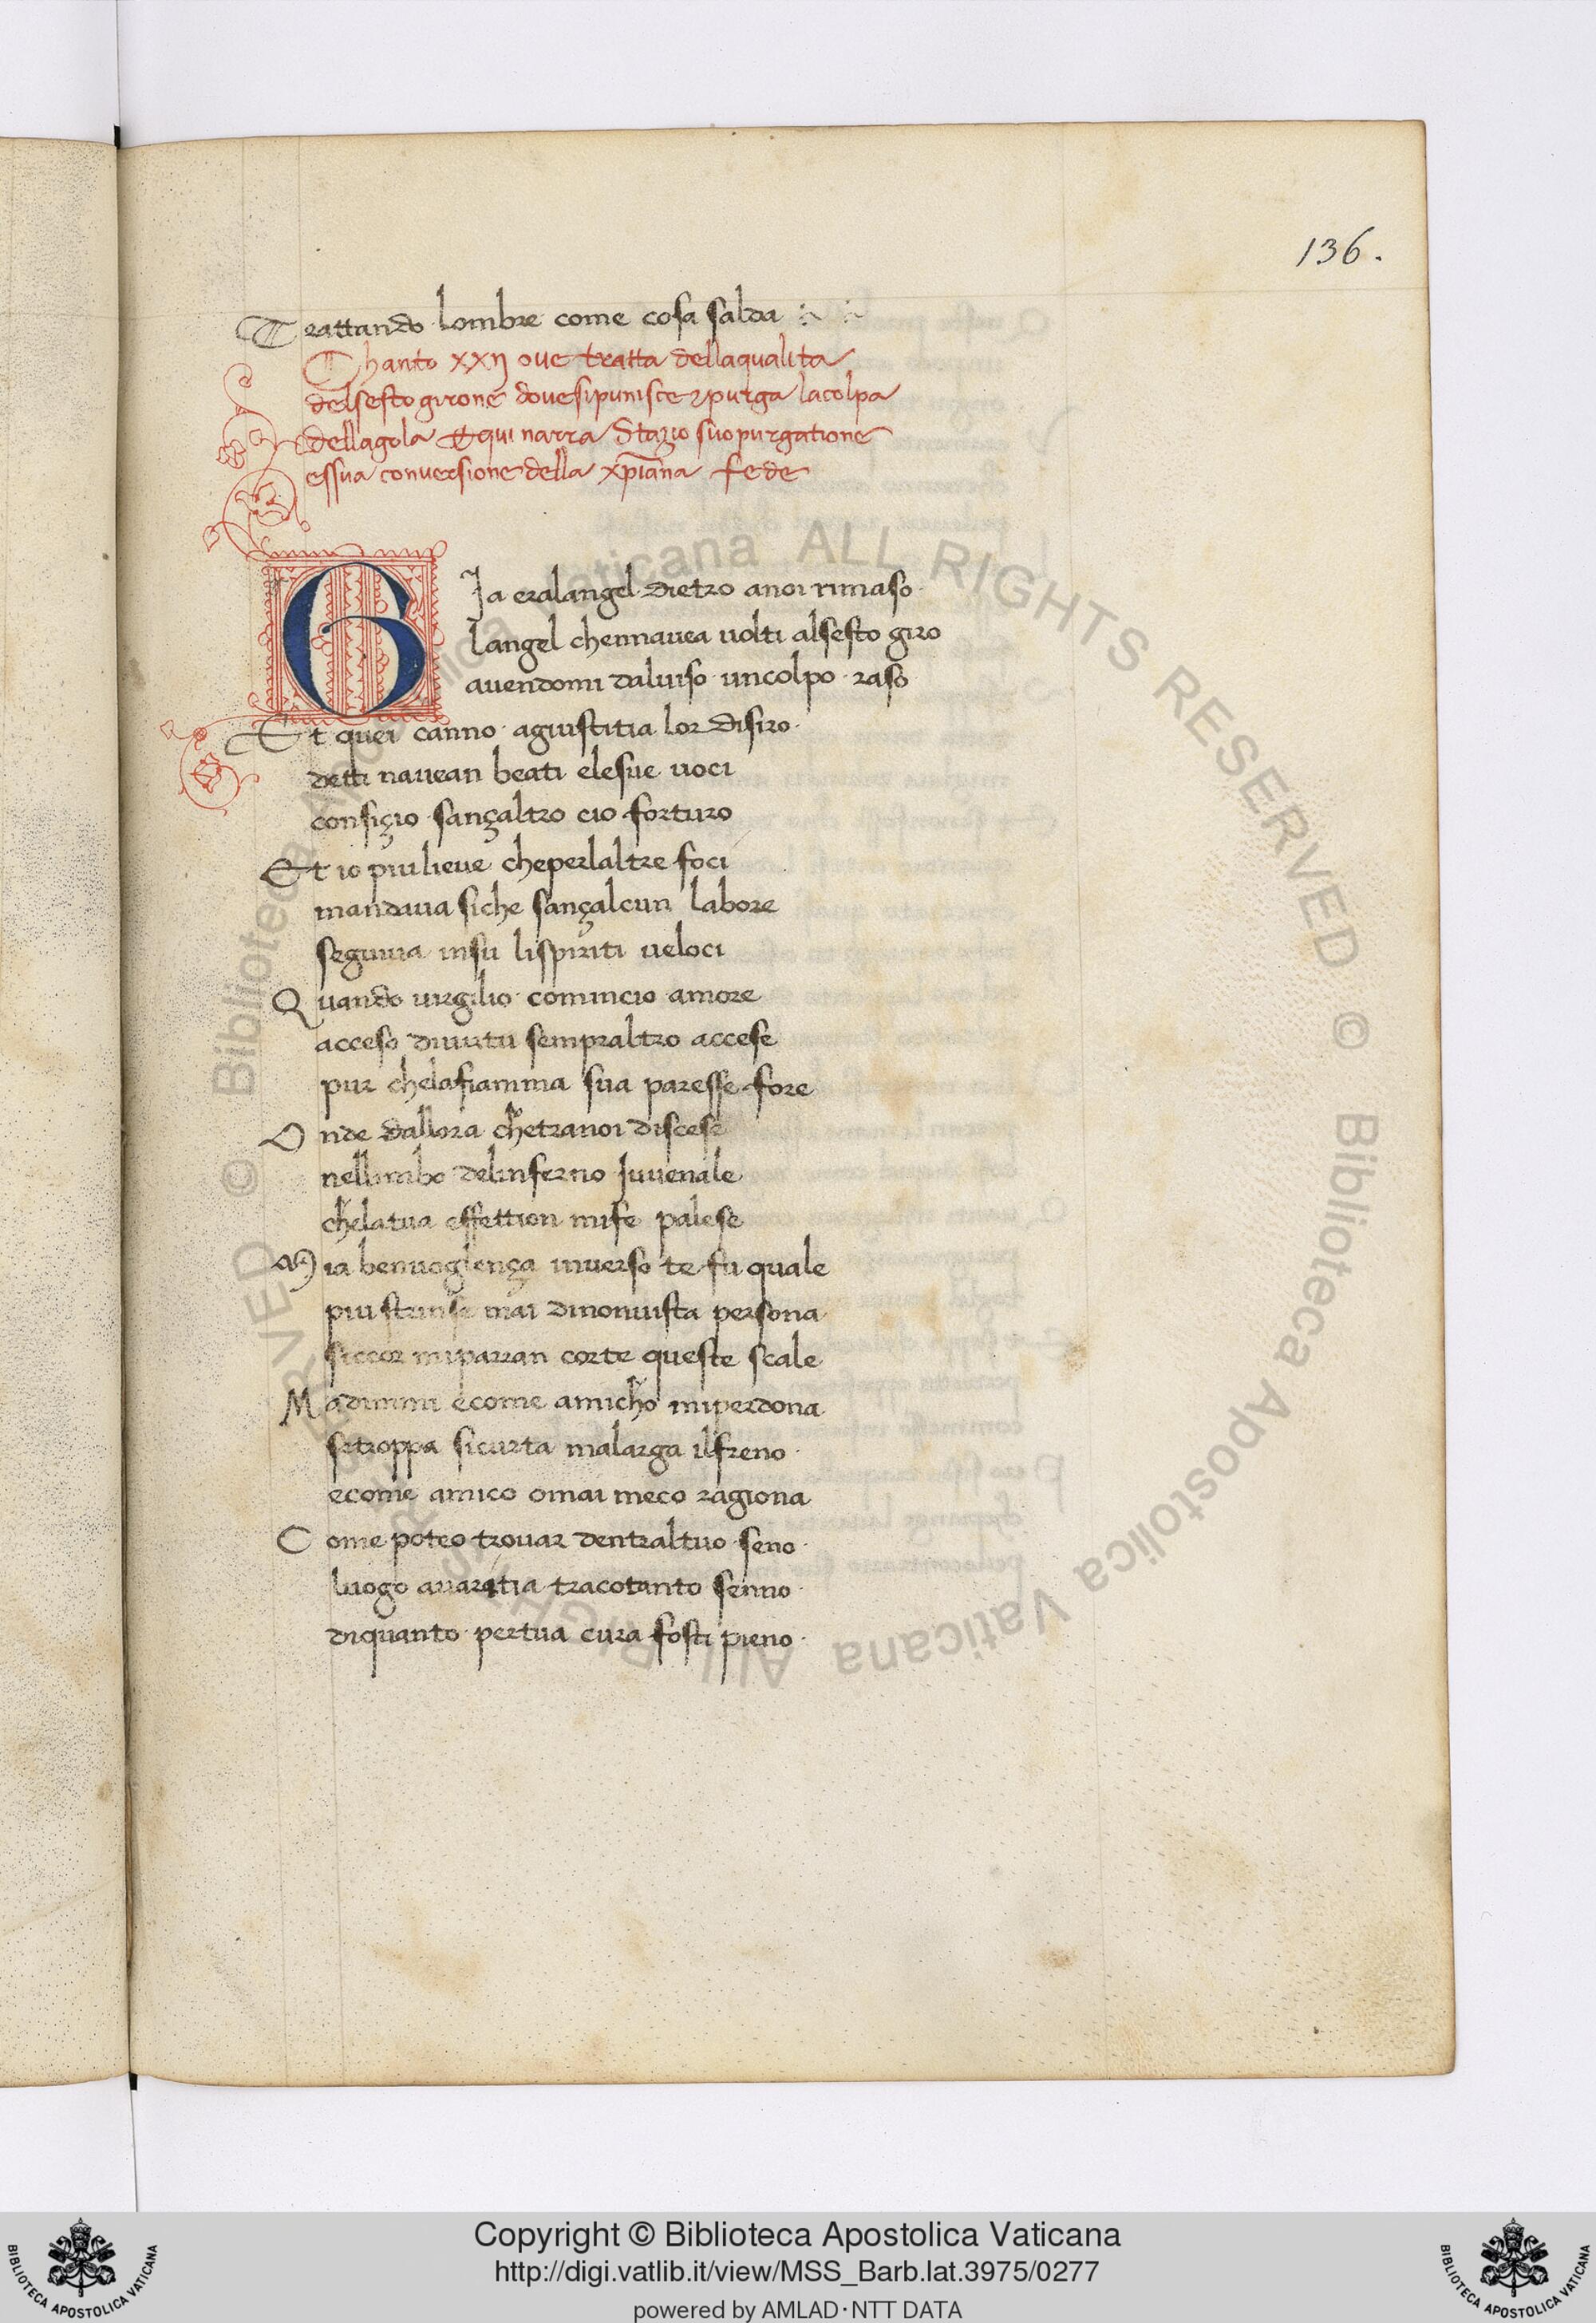 136.
Trattando lombre come cosa salda
Chanto xxij ove tratta dellaqualita
delsesto girone dovesipunisce ⁊ purga lacolpa
dellagola Et qui narra Stazio suo purgatione
essua conversione della xp̄iana fede
Gia eralangel dietro anoi rimaso
langel chennavea volti alsesto giro
avendomi dalviso uncolpo raso
Et quei canno agiustitia lor disiro
detti navean beati elesue voci
consiçio sançaltro cio forturo
Et io piulieve cheperlaltre foci
mandava siche sançalcun labore
seguiva insu lispiriti veloci
Quando virgilio comincio amore
acceso divirtu sempraltro accese
pur chelafiamma sua paresse fore
Onde dallora chetranoi discese
nellimbo delinferno Juvenale
chelatua effettion mife palese
Mia benvoglença inverso te fu quale
piu strinse mai dinonvista persona
siccor miparran corte queste scale
Madimmi ecome amicho miperdona
setroppa sicurta malarga ilfreno
ecome amico omai meco ragiona
Come poteo trovar dentraltuo seno
luogo avaritia tracotanto senno
diquanto pertua cura fosti pieno
© Biblioteca Apostolica Vaticana ALL RIGHTS RESERVED © Biblioteca Apostolica Vaticana ALL RIGHTS RESERVED
Copyright © Biblioteca Apostolica Vaticana
http://digi.vatlib.it/view/MSS_Barb.lat.3975/0277
powered by AMLAD·NTT DATA
BIBLIOTECA APOSTOLICA VATICANA
BIBLIOTECA APOSTOLICA VATICANA